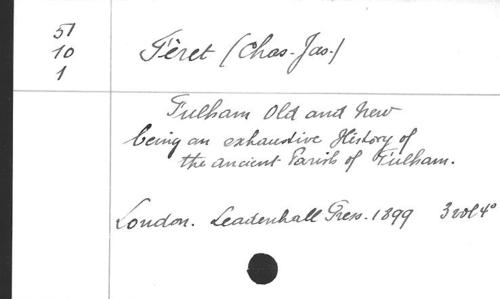 51
10
1
Féret (Chas. Jas.)
Fulham Old and New
being an exhaustive History of
the ancient Parish of Fulham.
London. Leadenhall Press. 1899 3 vol 4°